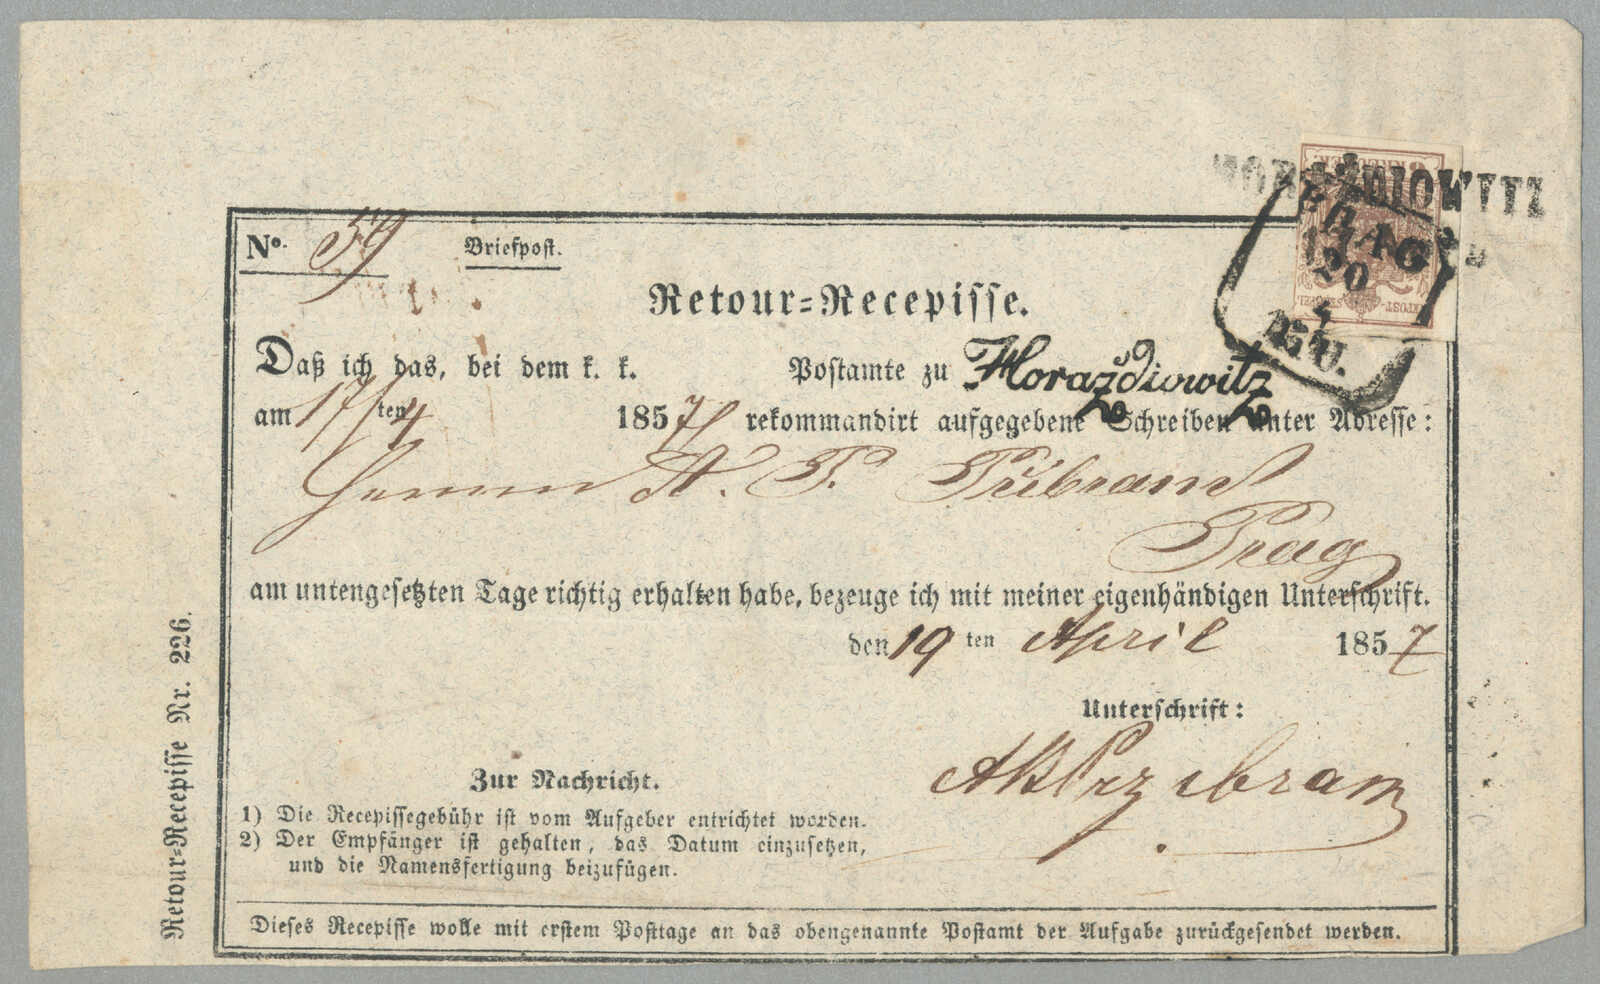 HORAŽDIOWITZ
PRAG
20
4
No. 59
Briefpost.
Retour=Recepisse.
Daß ich das, bei dem k. k. Postamte zu Horaždiowitz
am 17/4 ten 1857 rekommandirt aufgegebene Schreiben unter Adresse:
Herrn A. P. Přibram
Prag
am untengesetzten Tage richtig erhalten habe, bezeuge ich mit meiner eigenhändigen Unterschrift.
den 19 ten April 1857
Unterschrift:
Przibram
Zur Nachricht.
1) Die Recepissegebühr ist vom Aufgeber entrichtet worden.
2) Der Empfänger ist gehalten, das Datum einzusetzen,
und die Namensfertigung beizufügen.
Dieses Recepisse wolle mit erstem Posttage an das obengenannte Postamt der Aufgabe zurückgesendet werden.
Retour=Recepisse Nr. 226.